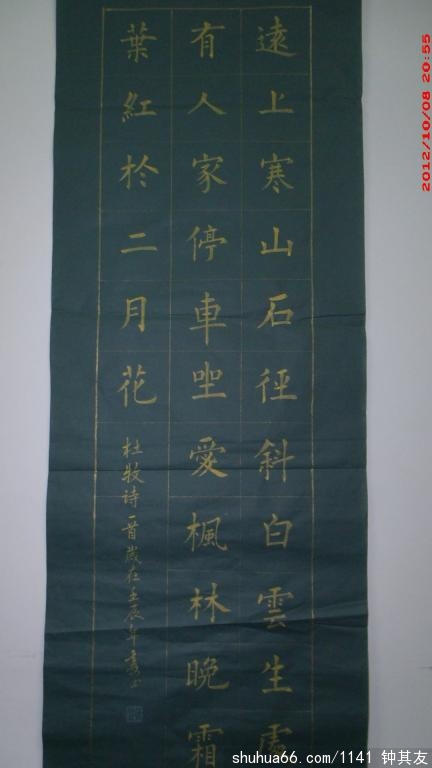 遠上寒山石徑斜白雲生處
有人家停車坐愛楓林晚霜
葉紅於二月花
杜牧诗一首歲在壬辰年書
2012/10/08 20:55
shuhua66.com/1141 钟其友